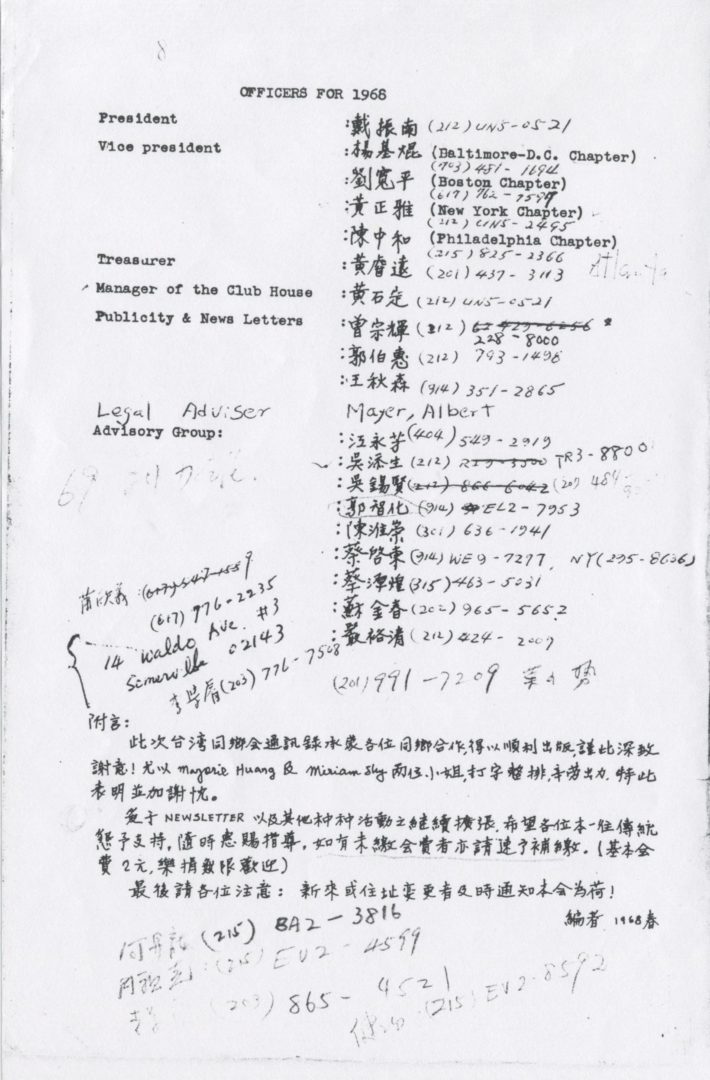 8
OFFICERS FOR 1968
President :戴振南 (212) UN5-0521
Vice president :楊基焜 (Baltimore-D.C. Chapter)
(703) 481-1694
:劉寬平 (Boston Chapter)
(617) 762-7599
:黃正雅 (New York Chapter)
(212) UN5-2495
:陳中和 (Philadelphia Chapter)
(215) 825-2366
Treasurer :黃 遠 (201) 437-3113 Atlanta
Manager of the Club House :黃石定 (212) UN5-0521
Publicity & News Letters :曾宗輝 (212)
228-8000
:郭伯惠 (212) 793-1498
:王秋森 (914) 351-2865
Legal Adviser Mayer, Albert
Advisory Group: :汪永 (404) 549-2919
:吳添生 (212) TR3-8800
69 :吳錫賢 (212) 866-6042 (201) 484-
:郭智化 (914) EL2-7953
:陳淮榮 (301) 636-1941
:蔡啓東 (914) WE9-7277, NY(295-8636)
:蔡澤煌 (315) 463-5031
(617) 776-2235
:蘇金春 (202) 965-5652
14 Waldo Ave. #3
Somerville 02143
:嚴裕清 (212) 424-2009
(203) 776-7508
(201) 991-7209
附言:
此次台湾同鄉会通訊錄承蒙各位同鄉合作,得以順利出版,謹此深致
謝意! 尤以 Marjorie Huang 及 Miriam Shy 兩位小姐,打字整排,辛劳出力,特此
表明並加謝忱。
爰于 NEWSLETTER 以及其他种种活動之継續擴張,希望各位本一往傳統
懇予支持,隨時惠賜指導,如有未繳会費者亦請速予補繳。(基本会
費 2元,樂捐数限歡迎)
最後請各位注意: 新來或住址変更者及時通知本会為荷!
編者 1968春
(215) BA2-3816
(215) EV2-4599
(203) 865-4521
(215) EV2-8592